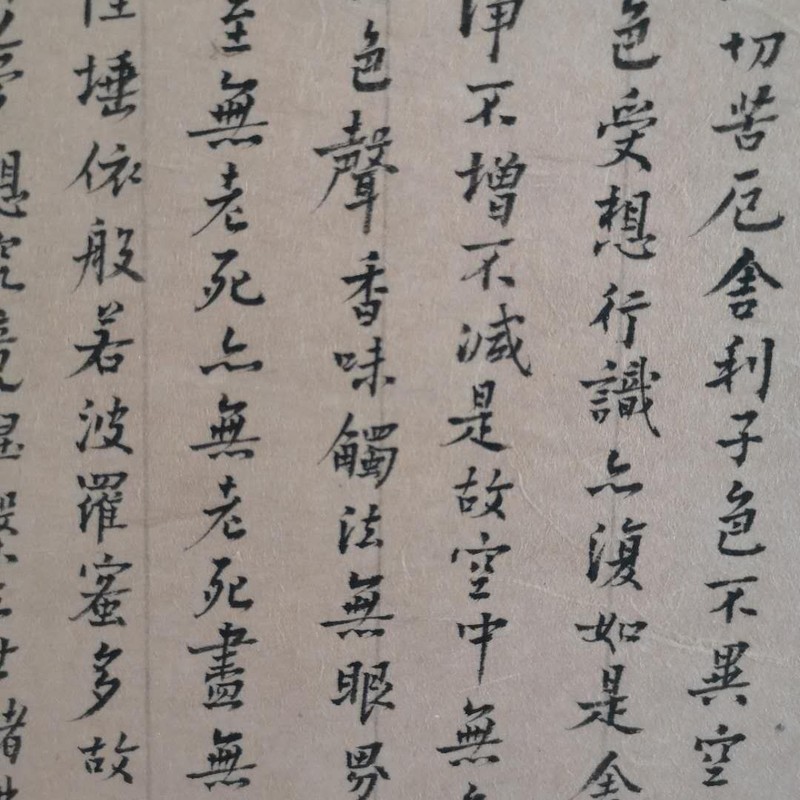 切苦厄舍利子色不異空
色受想行識亦復如是舍
不增不減是故空中無
色聲香味觸法無眼界
至無老死亦無老死盡無
埵依般若波羅蜜多故
想究竟涅槃三世諸